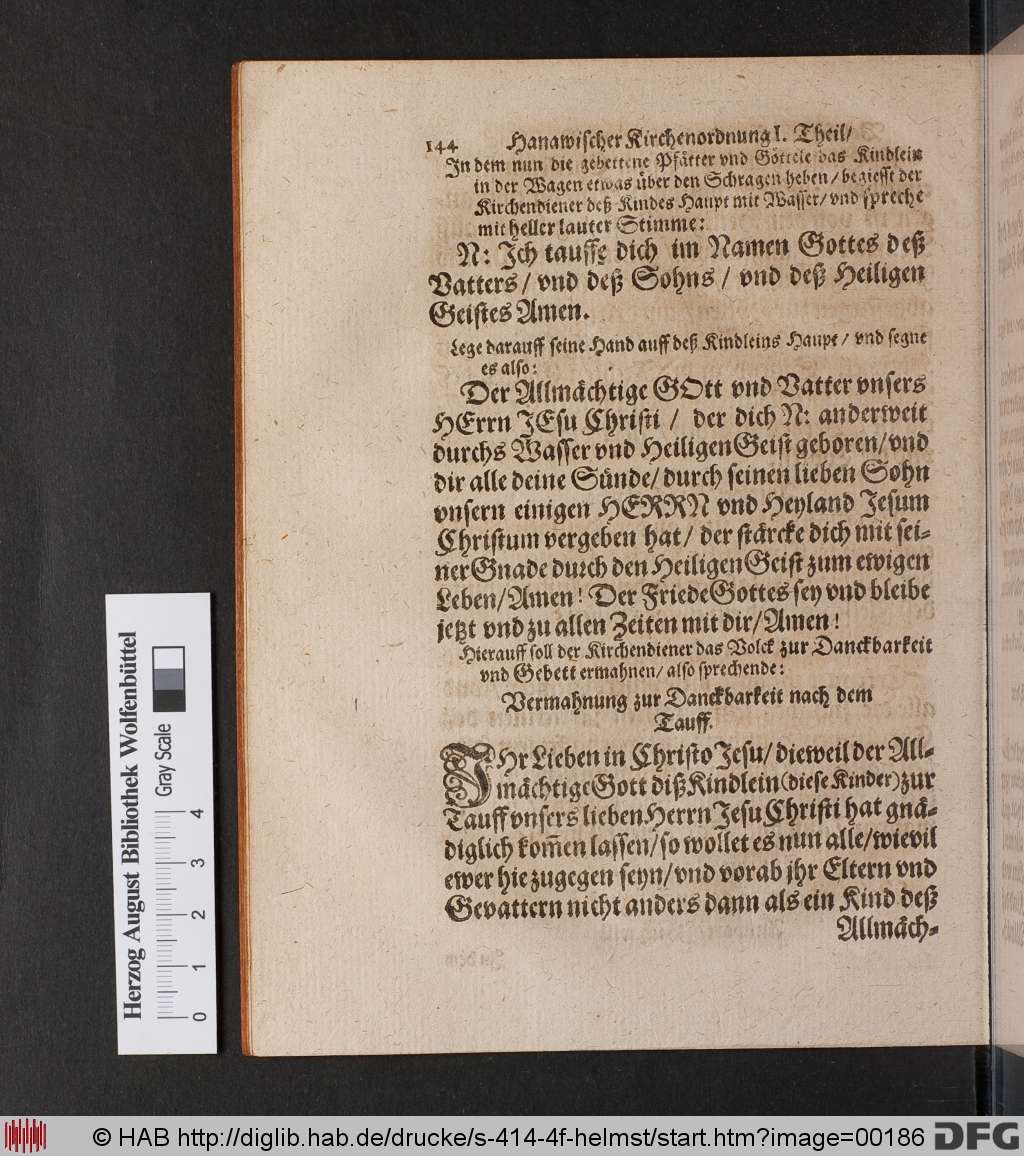 144 Hanawischer Kirchenordnung I. Theil/
In dem nun die gebettene Pfätter vnd Göttele das Kindlein
in der Wagen etwas über den Schragen heben / begiesst der
Kirchendiener deß Kindes Haupt mit Wasser/ vnd spreche
mit heller lauter Stimme:
N: Ich tauffe dich im Namen Gottes deß
Vatters / vnd deß Sohns / vnd deß Heiligen
Geistes Amen.
Lege darauff seine Hand auff deß Kindleins Haupt / vnd segne
es also:
Der Allmächtige GOtt vnd Vatter vnsers
HErrn JEsu Christi / der dich N: anderweit
durchs Wasser vnd Heiligen Geist geboren/ vnd
dir alle deine Sünde/ durch seinen lieben Sohn
vnsern einigen HERRN vnd Heyland Jesum
Christum vergeben hat / der stärcke dich mit sei-
ner Gnade durch den Heiligen Geist zum ewigen
Leben/ Amen! Der Friede Gottes sey vnd bleibe
jetzt vnd zu allen Zeiten mit dir/ Amen!
Hierauff soll der Kirchendiener das Volck zur Danckbarkeit
vnd Gebett ermahnen/ also sprechende:
Vermahnung zur Danckbarkeit nach dem
Tauff.
IHr Lieben in Christo Jesu/ dieweil der All-
mächtige Gott diß Kindlein (diese Kinder) zur
Tauff vnsers lieben Herrn Jesu Christi hat gnä-
diglich kom̃en lassen/ so wollet es nun alle/ wievil
ewer hie zugegen seyn/ vnd vorab jhr Eltern vnd
Gevattern nicht anders dann als ein Kind deß
Allmäch-
Herzog August Bibliothek Wolfenbüttel
Gray Scale
0 1 2 3 4
© HAB http://diglib.hab.de/drucke/s-414-4f-helmst/start.htm?image=00186 DFG